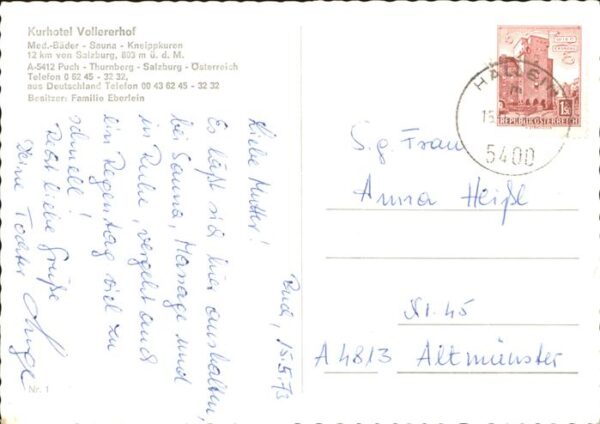 Kurhotel Vollererhof
Med.-Bäder - Sauna - Kneippkuren
12 km von Salzburg, 803 m ü. d. M.
A-5412 Puch - Thurnberg - Salzburg - Österreich
Telefon 0 62 45 - 32 32,
aus Deutschland Telefon 00 43 62 45 - 32 32
Besitzer: Familie Eberlein
Puch, 15.5.73
Liebe Mutter!
Es läßt sich hier aushalten,
bei Sauna, Massage und
in Ruhe, vergeht auch
ein Regentag viel zu
schnell!
Recht liebe Grüße
Deine Tochter Inge
Nr. 1
HALLEIN
15.
5400
WIEN
1.50
REPUBLIK ÖSTERREICH
S.g. Frau
Anna Heißl
Nr. 45
A 4813 Altmünster